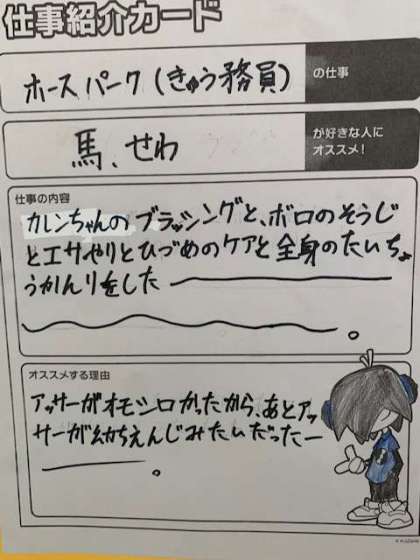 仕事紹介カード
ホースパーク(きゅう務員)
の仕事
馬、せわ
が好きな人に
オススメ!
仕事の内容
カレンちゃんのブラッシングと、ボロのそうじ
とエサやりとひづめのケアと全身のたいちょ
うかんりをした
。
オススメする理由
アッサーがオモシロかったから、あとアッ
サーが幼ちえんじみたいだったー
。